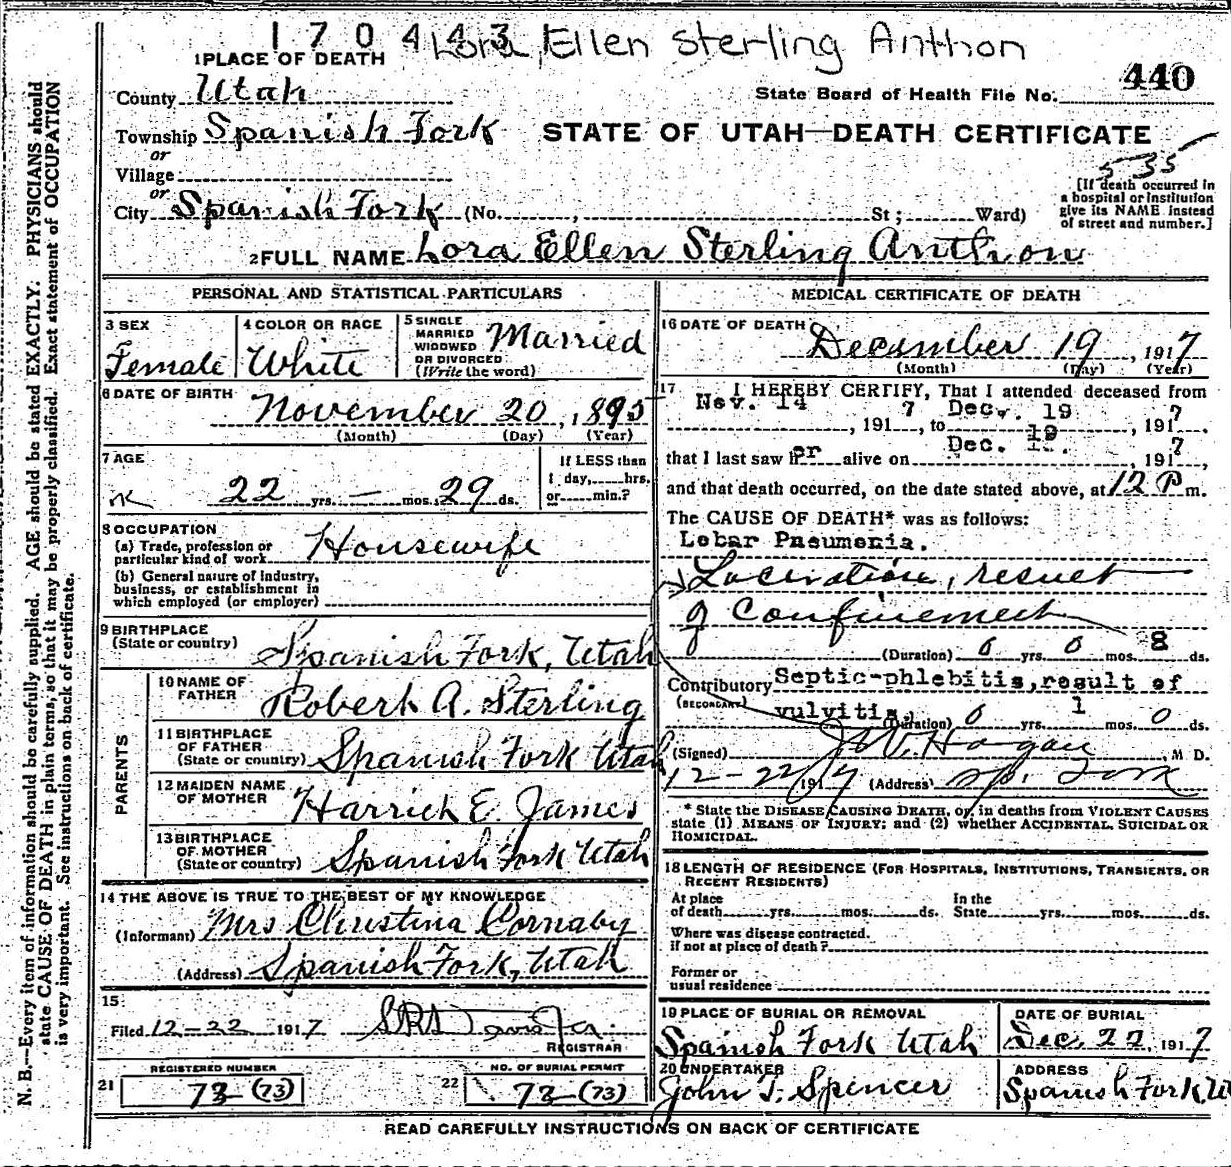 170443 Lora Ellen Sterling Anthon
1 PLACE OF DEATH
440
County Utah
State Board of Health File No.
Township Spanish Fork
STATE OF UTAH—DEATH CERTIFICATE
or
Village
535
or
City Spanish Fork (No. , St; Ward)
[If death occurred in
a hospital or institution
give its NAME instead
of street and number.]
2 FULL NAME Lora Ellen Sterling Anthon
PERSONAL AND STATISTICAL PARTICULARS
3 SEX
Female
4 COLOR OR RACE
White
5 SINGLE
MARRIED
WIDOWED
OR DIVORCED
(Write the word)
Married
6 DATE OF BIRTH
November 20, 1895
(Month) (Day) (Year)
7 AGE
22 yrs. — mos. 29 ds.
If LESS than
1 day, hrs.
or min.?
8 OCCUPATION
(a) Trade, profession or
particular kind of work
Housewife
(b) General nature of industry,
business, or establishment in
which employed (or employer)
9 BIRTHPLACE
(State or country)
Spanish Fork, Utah
PARENTS
10 NAME OF
FATHER
Robert A. Sterling
11 BIRTHPLACE
OF FATHER
(State or country)
Spanish Fork Utah
12 MAIDEN NAME
OF MOTHER
Harriet E. James
13 BIRTHPLACE
OF MOTHER
(State or country)
Spanish Fork Utah
14 THE ABOVE IS TRUE TO THE BEST OF MY KNOWLEDGE
(Informant) Mrs Christina Cornaby
(Address) Spanish Fork, Utah
15
Filed 12-22 1917
REGISTRAR
REGISTERED NUMBER
21 73 (73)
NO. OF BURIAL PERMIT
22 73 (73)
MEDICAL CERTIFICATE OF DEATH
16 DATE OF DEATH
December 19, 1917
(Month) (Day) (Year)
17 I HEREBY CERTIFY, That I attended deceased from
Nov. 14, 1917, to Dec. 19, 1917
that I last saw her alive on Dec. 19, 1917
and that death occurred, on the date stated above, at 12 P m.
The CAUSE OF DEATH* was as follows:
Lobar Pneumonia.
Laceration, result
of confinement
(Duration) 0 yrs. 0 mos. 8 ds.
Contributory Septic-phlebitis, result of
(SECONDARY)
vulvitis. (Duration) 0 yrs. 1 mos. 0 ds.
(Signed) J. W. Hagan, M D.
12-22 1917 (Address) Sp. Fork
* State the DISEASE CAUSING DEATH, or, in deaths from VIOLENT CAUSES
state (1) MEANS OF INJURY; and (2) whether ACCIDENTAL, SUICIDAL OR
HOMICIDAL.
18 LENGTH OF RESIDENCE (FOR HOSPITALS, INSTITUTIONS, TRANSIENTS, OR
RECENT RESIDENTS)
At place
of death yrs. mos. ds.
In the
State yrs. mos. ds.
Where was disease contracted.
if not at place of death?
Former or
usual residence
19 PLACE OF BURIAL OR REMOVAL
Spanish Fork Utah
DATE OF BURIAL
Dec. 22, 1917
20 UNDERTAKER
John T. Spencer
ADDRESS
Spanish Fork U
READ CAREFULLY INSTRUCTIONS ON BACK OF CERTIFICATE
N. B.—Every item of information should be carefully supplied. AGE should be stated EXACTLY. PHYSICIANS should
state CAUSE OF DEATH in plain terms, so that it may be properly classified. Exact statement of OCCUPATION
is very important. See instructions on back of certificate.